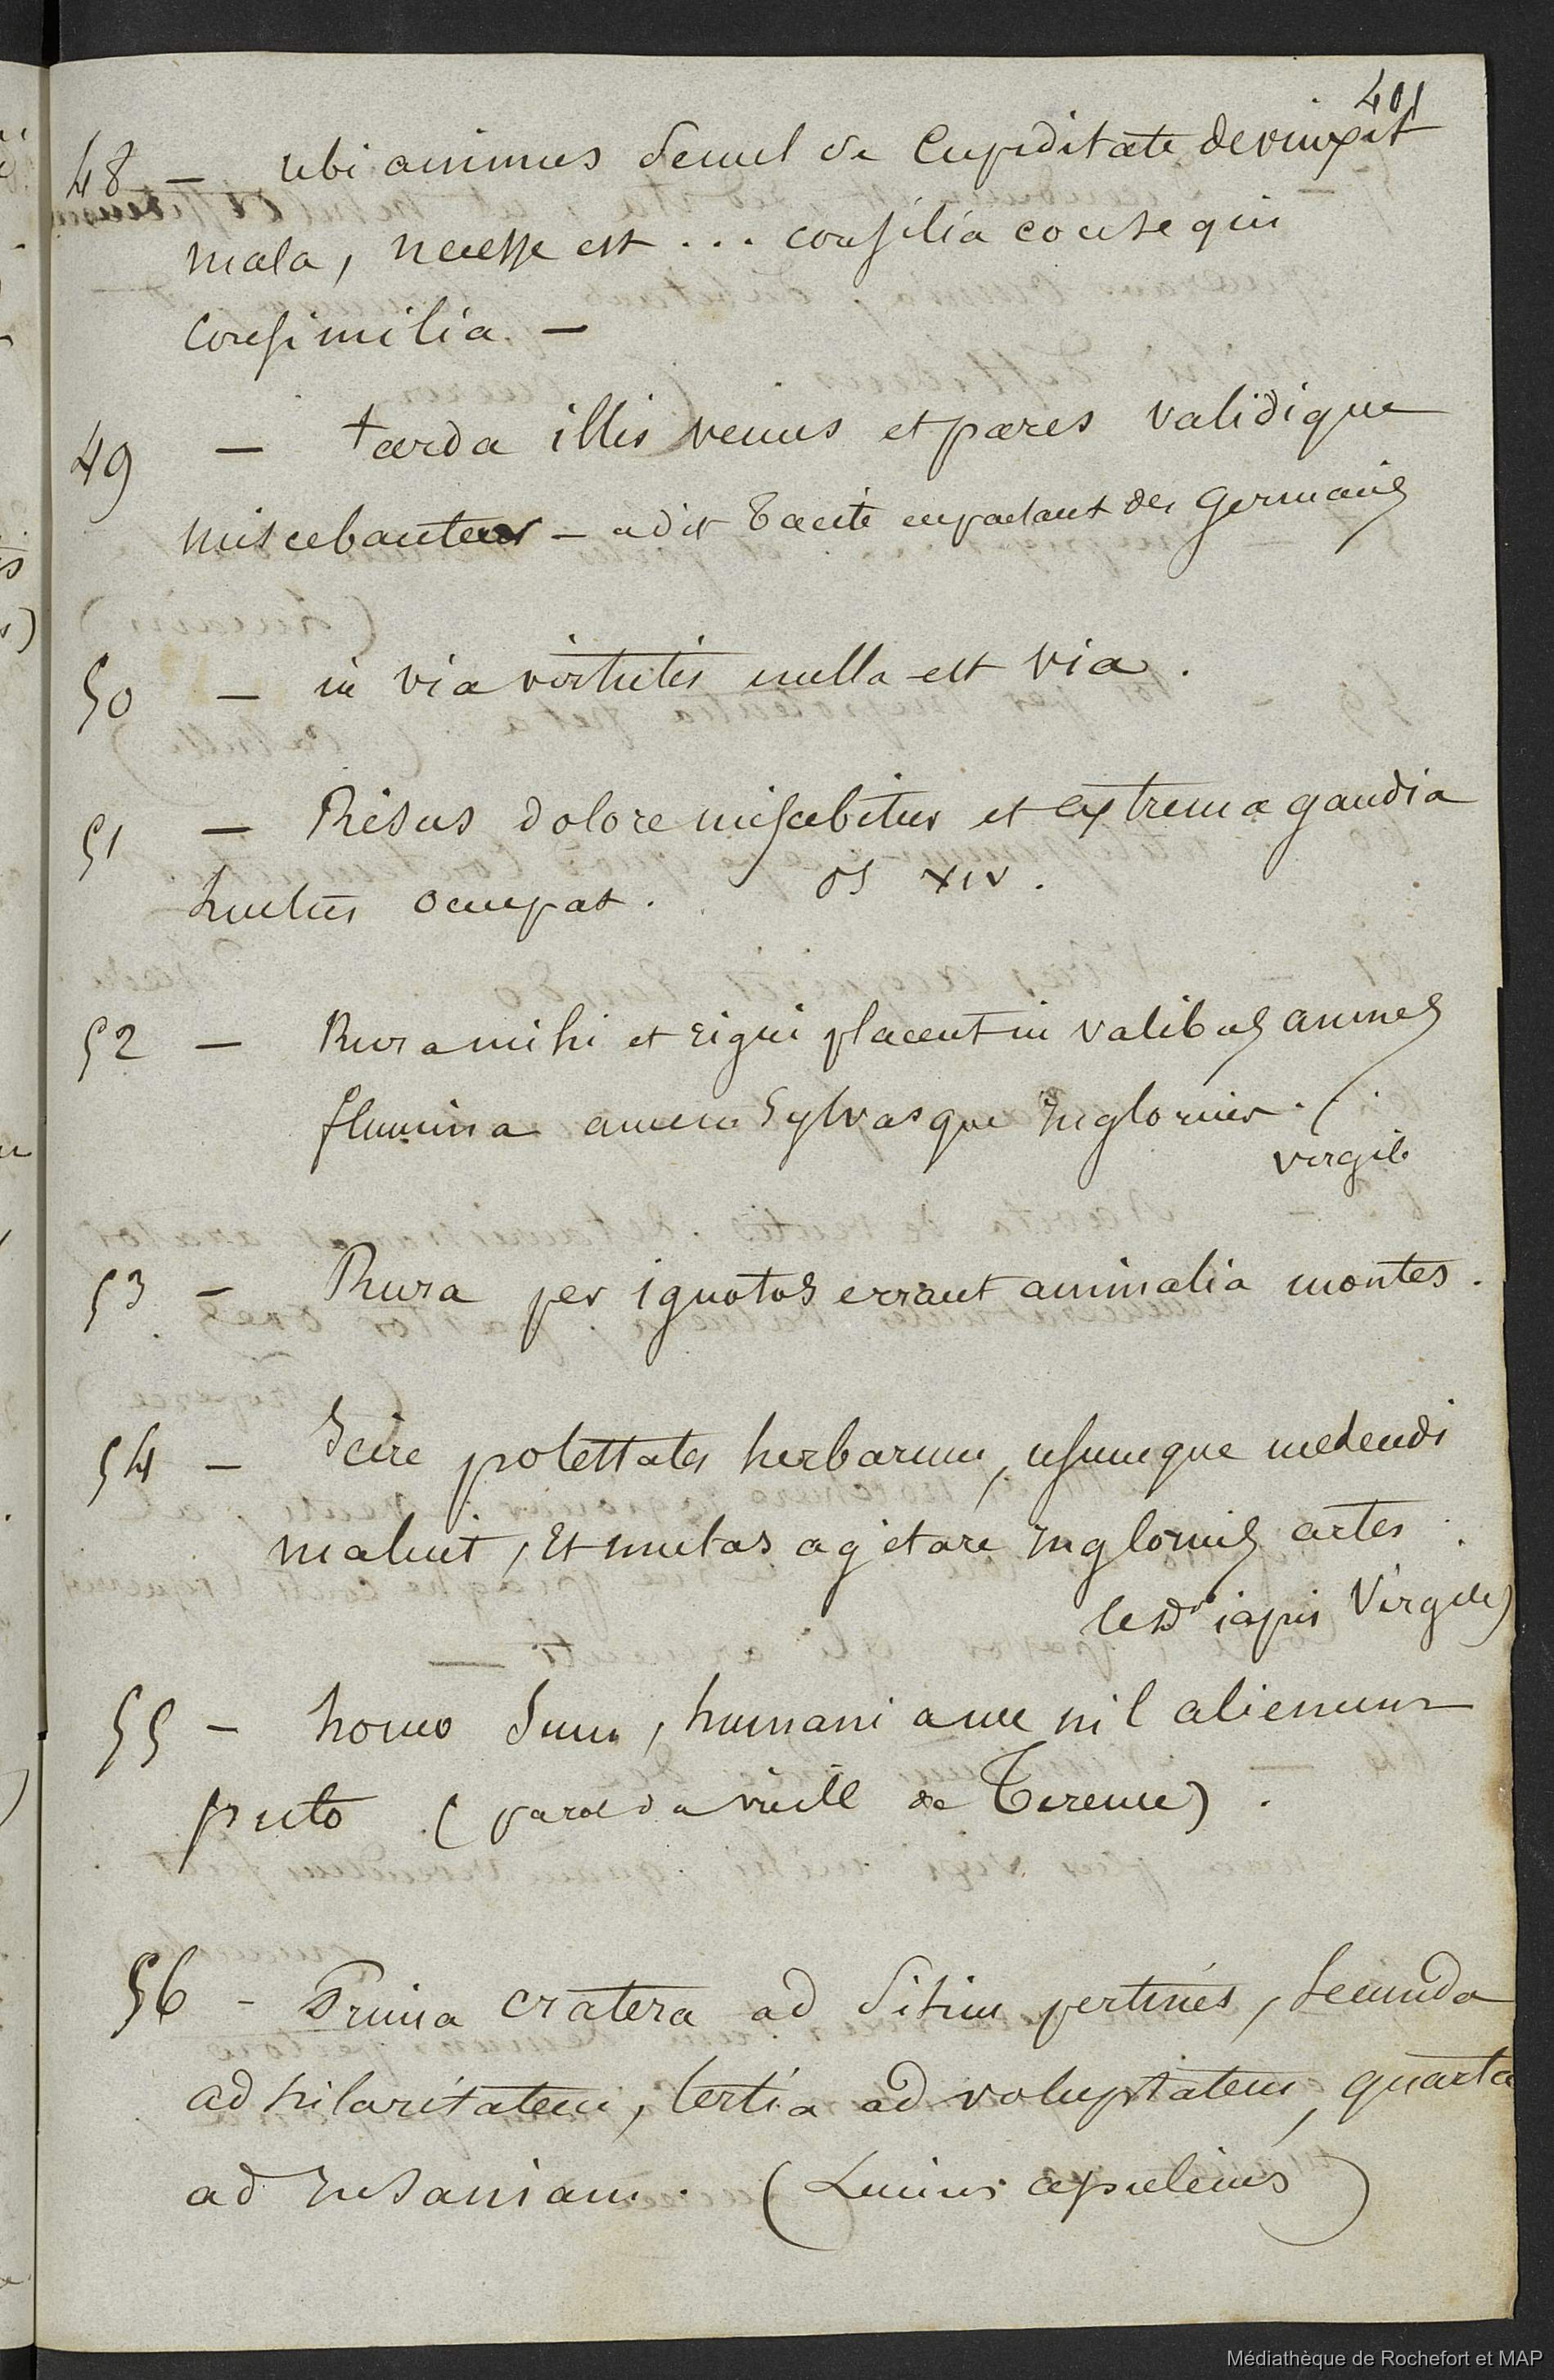 401
48 — ubi animus semel se Cupiditate devinxit
mala, necesse est ... consilia consequi
consimilia. —
49 — tarda illis venus et pares validique
miscebantur — a dit Tacite en parlant des Germains
50 — in via virtutis nulla est via.
51 — Risus dolore miscebitur et extrema gaudia
luctus occupat. ps XIV.
52 — Rura mihi et rigui placent in valibus amnes
flumina amem Sylvasque inglorius. (
virgile
53 — Rura per ignotos errant animalia montes.
54 — Scire potestates herbarum, usumque medendi
maluit, Et mutas agitare inglorius artes.
le dr iapis Virgile)
55 — homo Sum, humani a me nil alienum
puto (parole de Terence).
56 - Prima cratera ad Sitim pertines, Secunda
ad hilaritatem, tertia ad voluptatem, quarta
ad insaniam. (Lucius apuleius)
Médiathèque de Rochefort et MAP